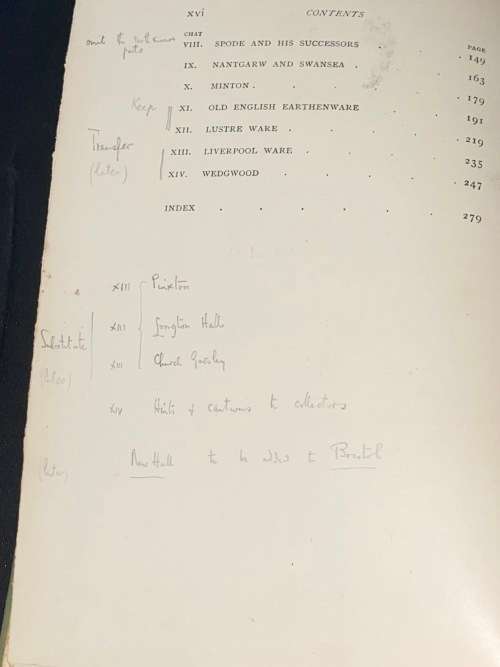 xvi CONTENTS
CHAP. PAGE
omit the earthenware parts
VIII. SPODE AND HIS SUCCESSORS . . 149
IX. NANTGARW AND SWANSEA . . 163
X. MINTON . . . . . 179
Keep
XI. OLD ENGLISH EARTHENWARE . . 191
XII. LUSTRE WARE . . . . 219
Transfer
(later)
XIII. LIVERPOOL WARE . . . . 235
XIV. WEDGWOOD . . . . 247
INDEX . . . . . . 279
XIII Pinxton
Substitute
XIII Longton Hall
XIII Church Gresley
XIV Hints & cautions to collectors
New Hall to be added to Bristol